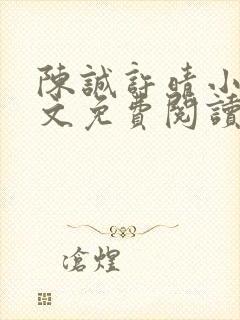 陳誠許晴小
文免費閱讀
滄煌